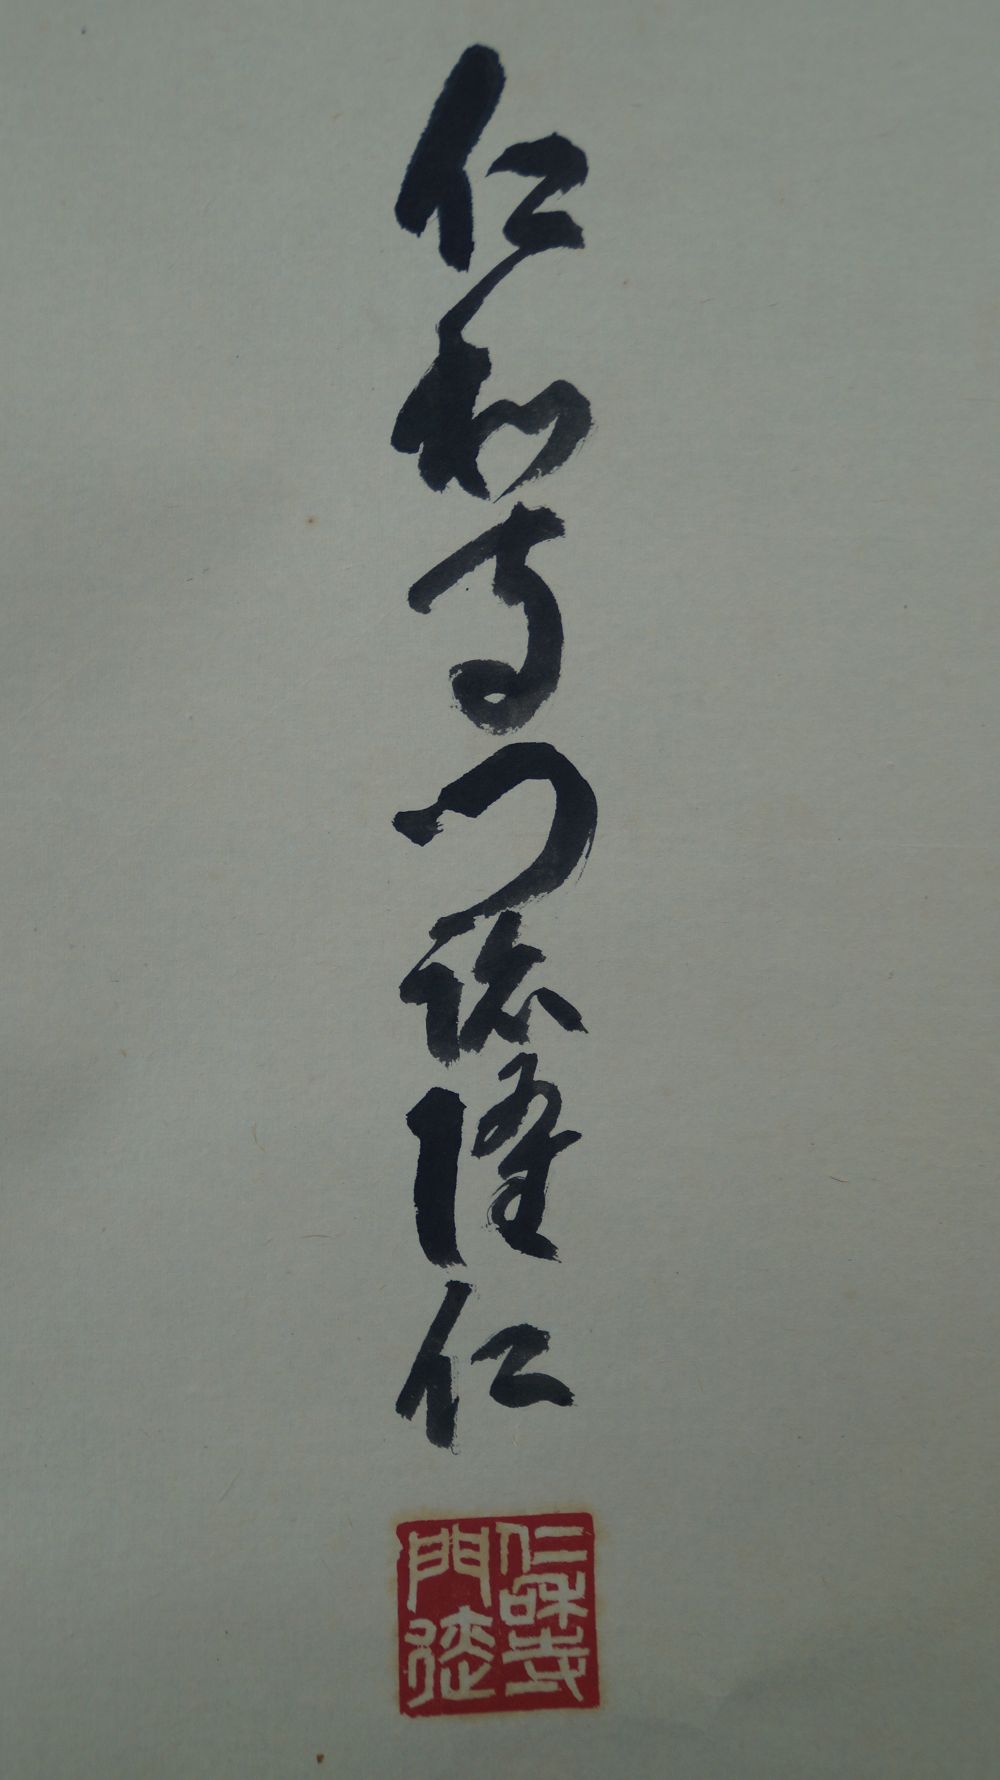 仁和寺門跡隆仁
仁和寺
門迹